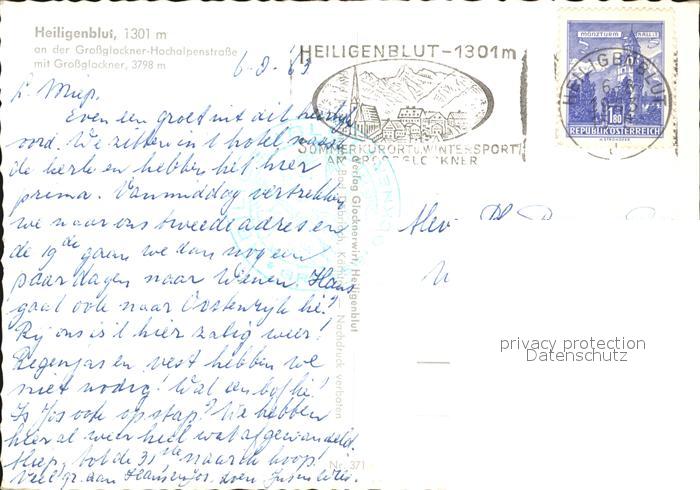 Heiligenblut, 1301 m
an der Großglockner-Hochalpenstraße
mit Großglockner, 3798 m
HEILIGENBLUT-1301m
SOMMERKURORT u. WINTERSPORT
AM GROSSGLOCKNER
MÜNZTURM HALL
S 1.80
REPUBLIK ÖSTERREICH
HEILIGENBLUT
L. Miep.
Even een groet uit dit
oord. We zitten in 't hotel naast
de kerk en hebben het hier
prima. Vanmiddag vertrekken
we naar ons tweede adres en
de 19de gaan we dan nog een
paar dagen naar Wenen. Hans
gaat ook naar Oostenrijk hè?
Bij ons is 't hier zalig weer!
Regenjas en vest hebben we
niet nodig! Wat een bof hè!
Is Jos ook op stap? We hebben
hier al weer heel wat afgewandeld.
Miep, tot de 31ste naar ik hoop!
Veel gr. aan
Verlag Glocknerwirt, Heiligenblut
Nachdruck verboten
Nr. 371
Mev.
privacy protection
Datenschutz